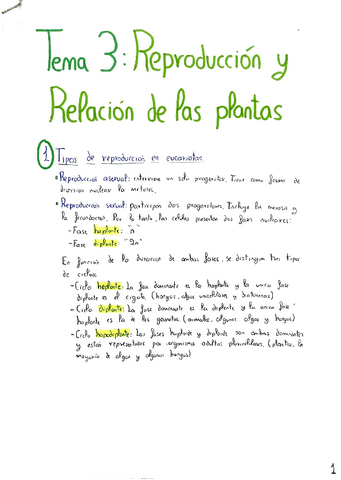 Tema 3: Reproducción y
Relación de las plantas
1 Tipos de reproducción en eucariotas.
• Reproducción asexual: interviene un solo progenitor. Tiene como forma de
división nuclear la mitosis.
• Reproducción sexual: participan dos progenitores. Incluye la meiosis y
la fecundación. Por lo tanto, las células presentan dos fases nucleares:
- Fase haplonte: "n"
- Fase diplonte: "2n"
En función de la duración de ambas fases, se distinguen tres tipos
de ciclos:
- Ciclo haplonte: La fase dominante es la haplonte y la única fase
diplonte es el cigoto. (hongos, algas unicelulares y
- Ciclo diplonte: La fase dominante es la diplonte y la única fase
haplonte es la de los gametos (animales, algunas algas y hongos)
- Ciclo haplodiplonte: Las fases haplonte y diplonte son ambas dominantes
y están representadas por organismos adultos pluricelulares. (plantas, la
mayoría de algas y algunos hongos)
1